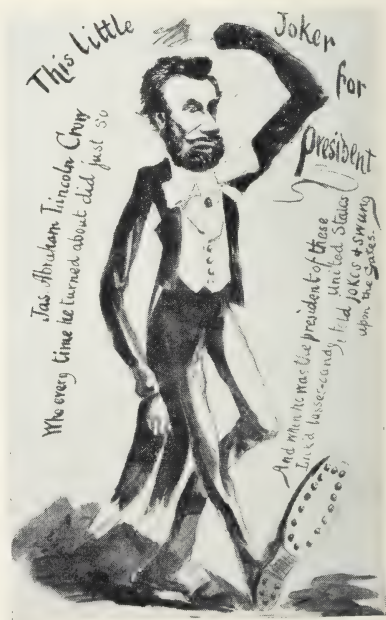 This Little Joker for President
Jas. Abraham Lincoln Crow
Who every time he turned about did just so
And when he was the president of these United States
lasses-candy, told jokes & swung
upon the gates.